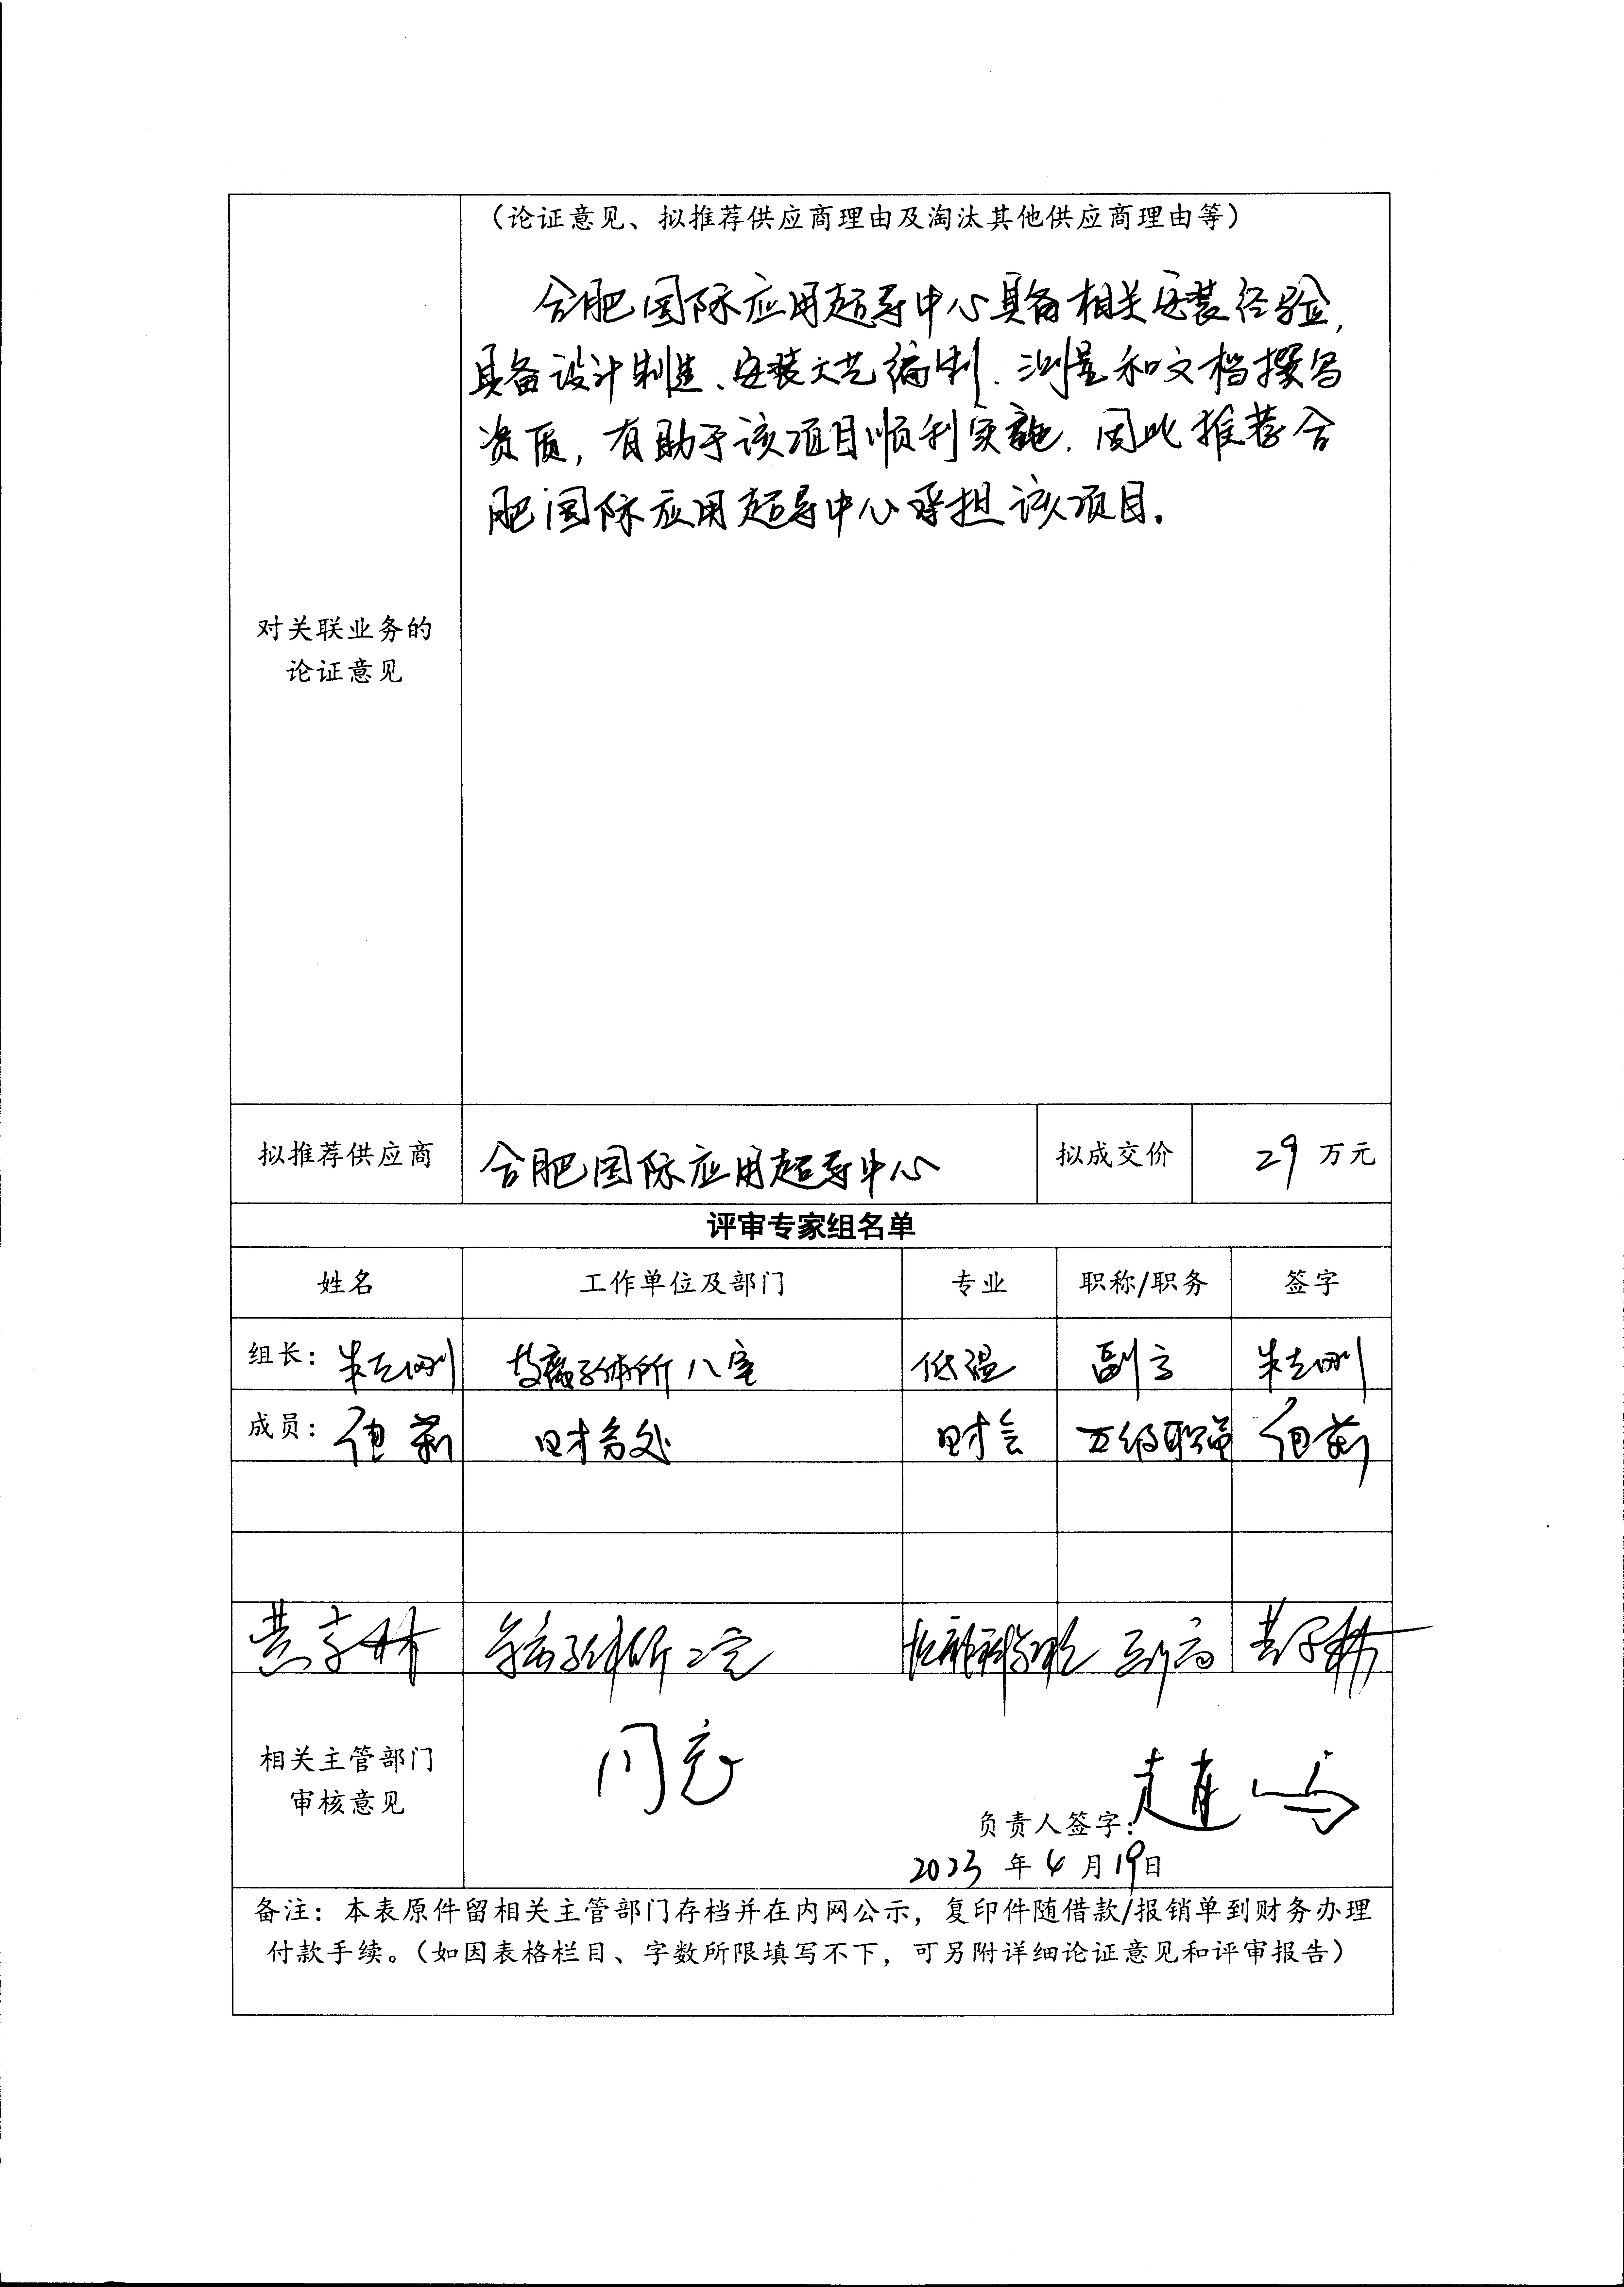 （论证意见、拟推荐供应商理由及淘汰其他供应商理由等）
合肥国际应用超导中心具备相关安装经验，
具备设计制造、安装工艺编制、测量和文档撰写
资质，有助于该项目顺利实施．因此推荐合
肥国际应用超导中心承担该项目。
对关联业务的
论证意见
拟推荐供应商 合肥国际应用超导中心 拟成交价 29 万元
评审专家组名单
姓名 工作单位及部门 专业 职称/职务 签字
组长： 等离子体所八室 低温 副高
成员： 财务处 财会 五级职员
等离子体所二室 副高
相关主管部门
审核意见
同意
负责人签字：
2023 年 4 月 19 日
备注：本表原件留相关主管部门存档并在内网公示，复印件随借款/报销单到财务办理
付款手续。（如因表格栏目、字数所限填写不下，可另附详细论证意见和评审报告）